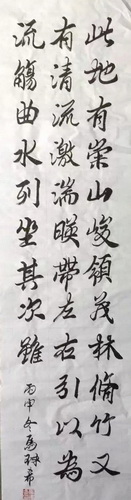 此地有崇山峻領茂林脩竹又
有清流激湍暎帶左右引以為
流觴曲水列坐其次雖
丙申冬馬林希